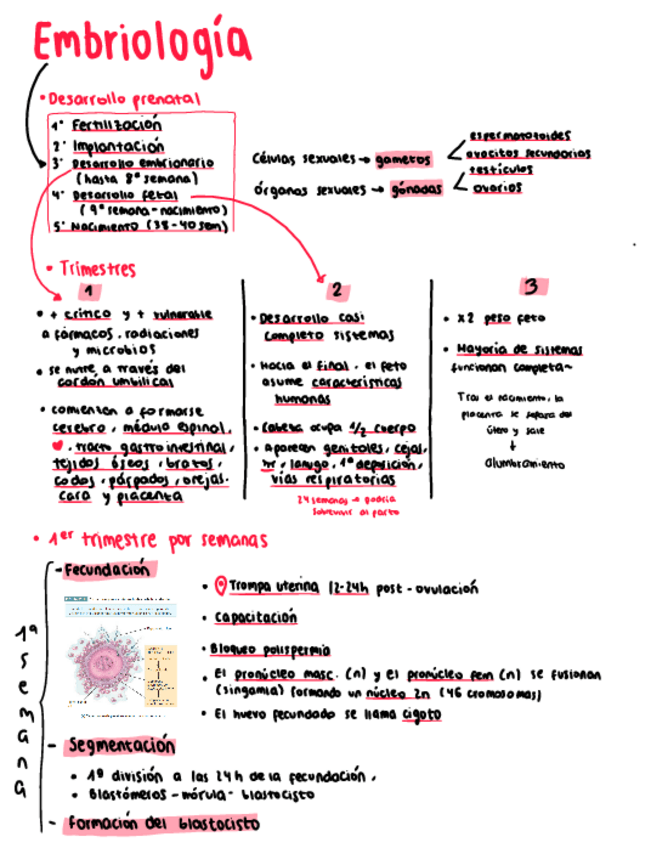 Embriología
• Desarrollo prenatal
1° Fertilización
2° Implantación
3° Desarrollo embrionario
(hasta 8ª semana)
4° Desarrollo fetal
(9ª semana - nacimiento)
5° Nacimiento (38-40 sem)
Células sexuales → gametos
espermatozoides
ovocitos secundarios
Órganos sexuales → gónadas
testículos
ovarios
• Trimestres
1
• + crítico y + vulnerable
a fármacos, radiaciones
y microbios
• se nutre a través del
cordón umbilical
• comienzan a formarse
cerebro, médula espinal,
♥, tracto gastrointestinal,
tejidos óseos, brazos,
codos, párpados, orejas,
cara y placenta
2
• Desarrollo casi
completo sistemas
• Hacia el final, el feto
asume características
humanas
• Cabeza ocupa 1/2 cuerpo
• Aparecen genitales, cejas,
lanugo, 1ª deposición,
vías respiratorias
24 semanas → podría
sobrevivir al parto
3
• x2 peso feto
• Mayoría de sistemas
funcionan completa~
Tras el nacimiento, la
placenta se separa del
útero y sale
↓
alumbramiento
• 1er trimestre por semanas
1ª semana
- Fecundación
• Trompa uterina 12-24h post-ovulación
• Capacitación
• Bloqueo polispermia
• El pronúcleo masc. (n) y el pronúcleo fem (n) se fusionan
(singamia) formando un núcleo 2n (46 cromosomas)
• El huevo fecundado se llama cigoto
- Segmentación
• 1ª división a las 24h de la fecundación.
• Blastómeros - mórula - blastocisto
- Formación del blastocisto